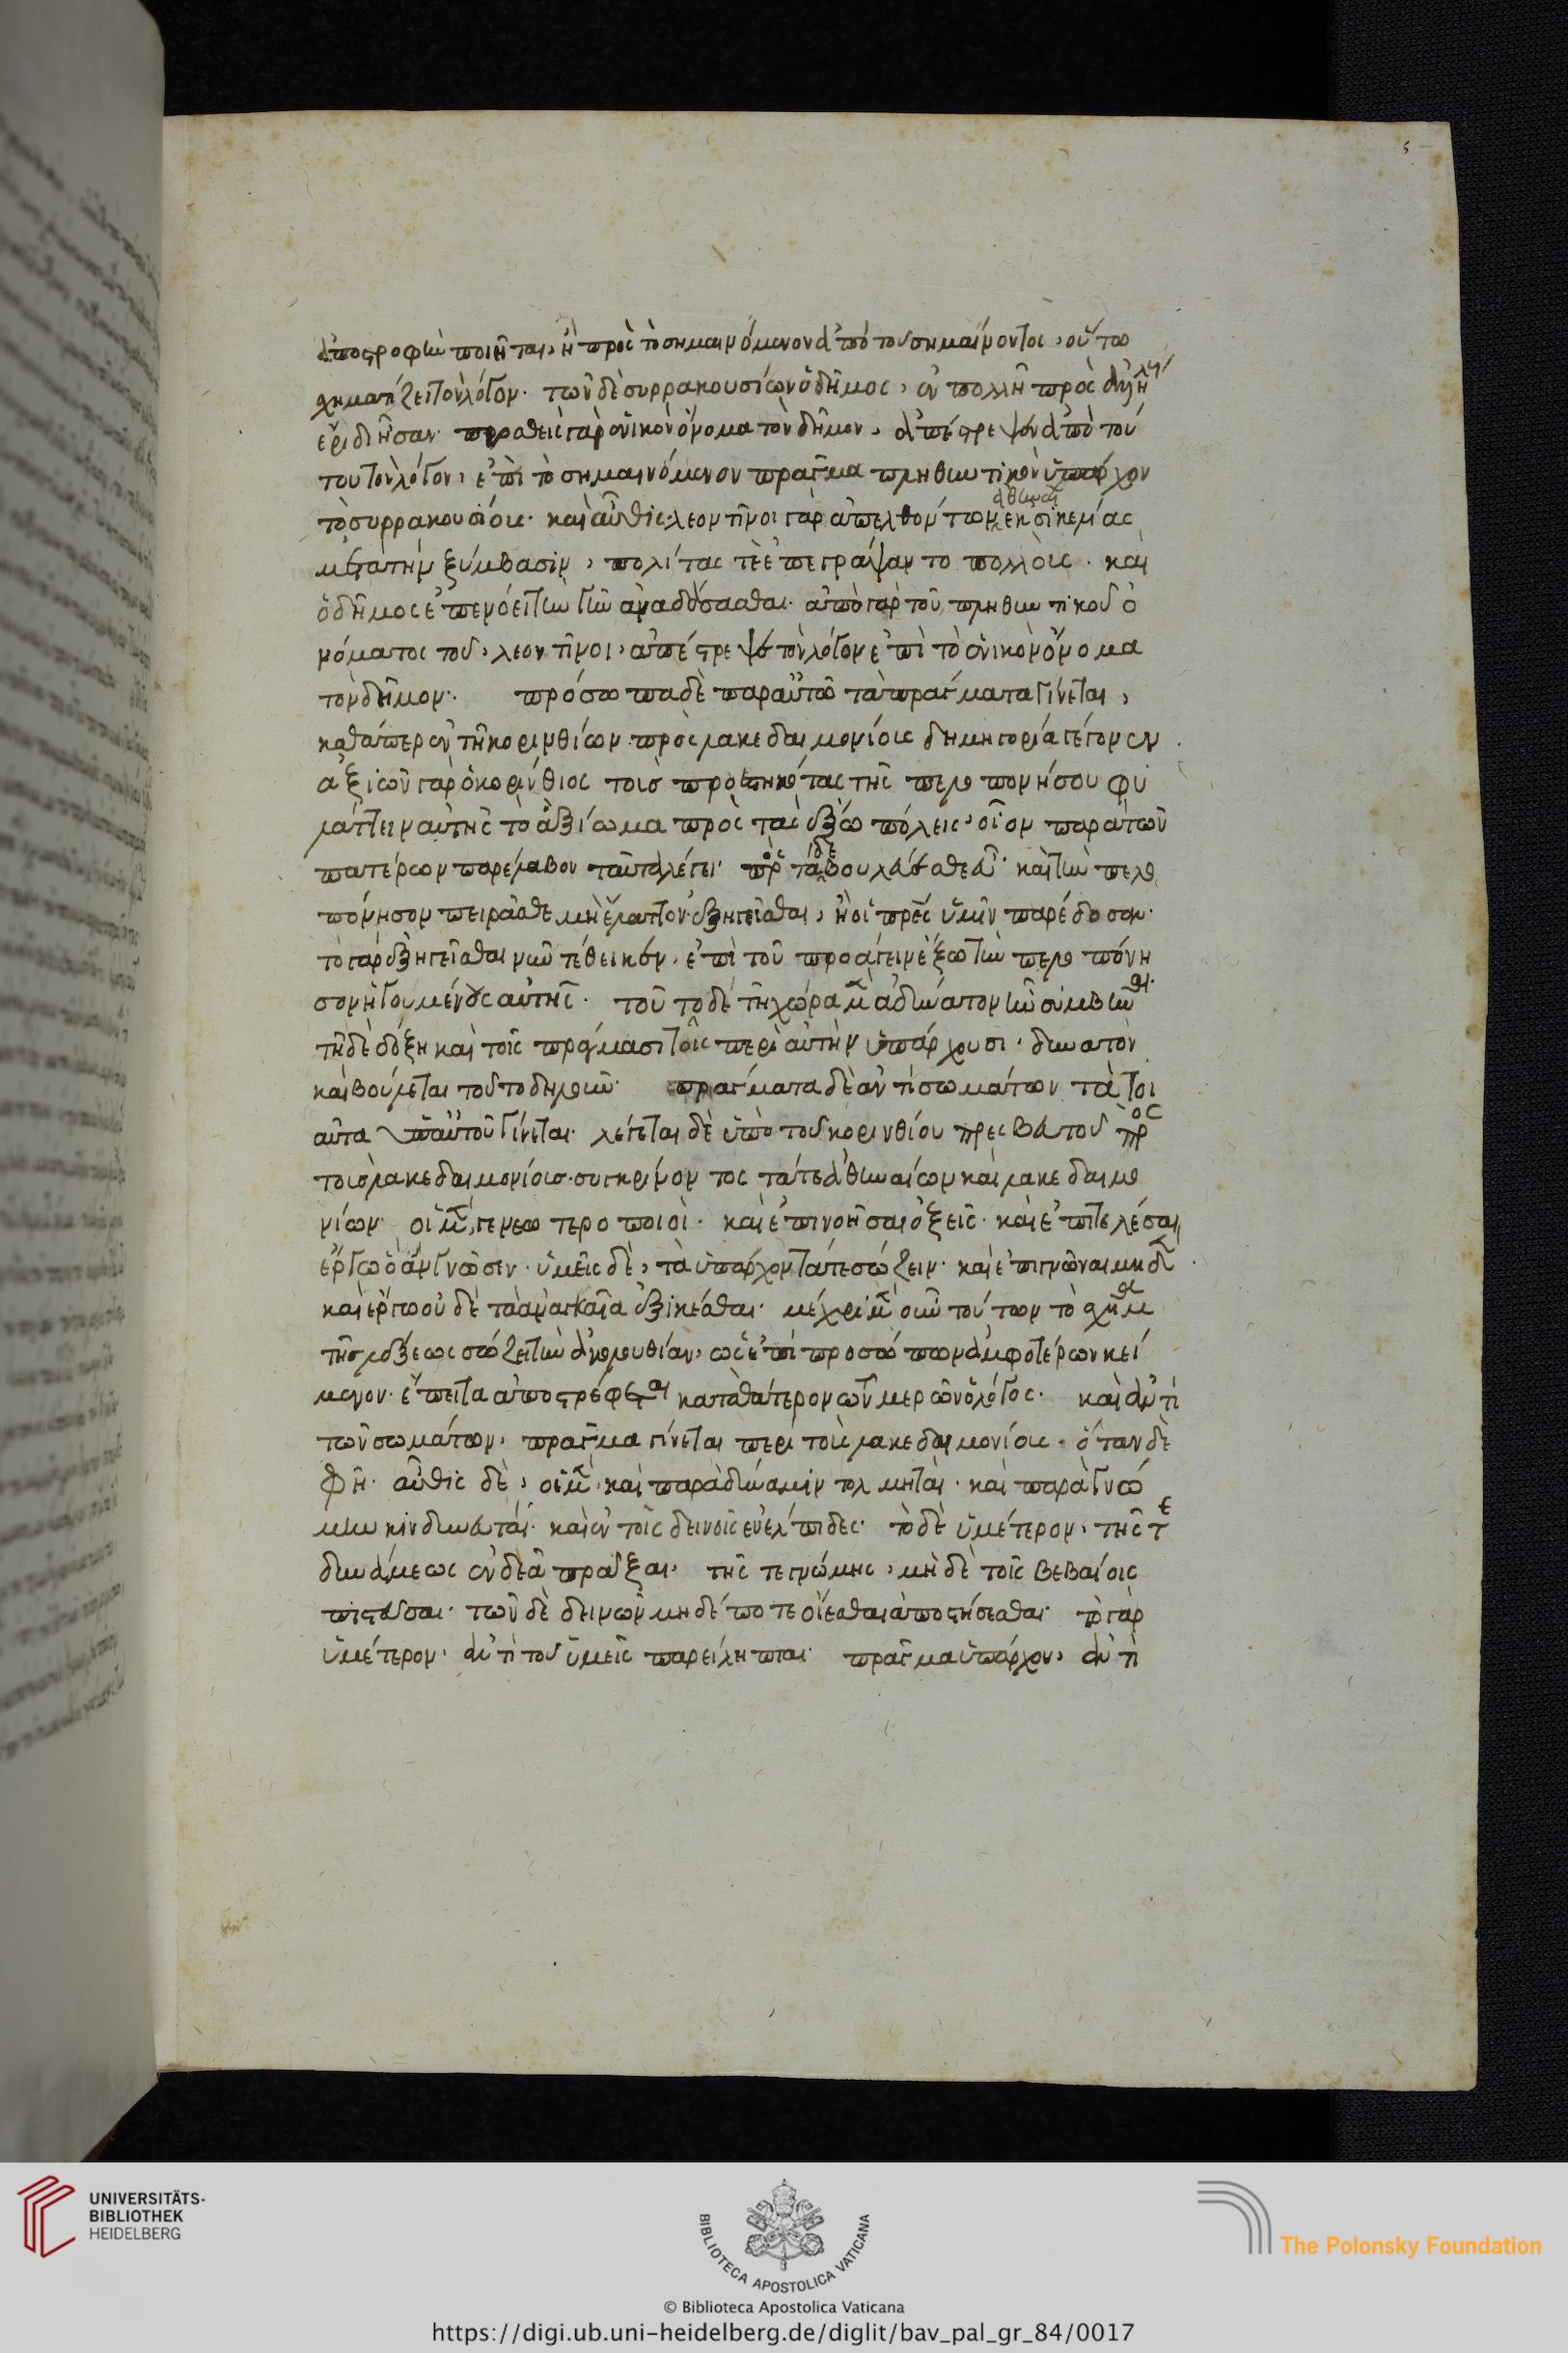 ς
ἀποστροφὴν ποιῆται, ἢ πρὸς τὸ σημαινόμενον ἀπὸ τοῦ σημαίνοντος, οὕτω
σχηματίζει τὸν λόγον. τῶν δὲ συρρακουσίων ὁ δῆμος, ἐν πολλῆ πρὸς ἀλλήλ
ἔριδι ἦσαν. προθεὶς γὰρ ἑνικὸν ὄνομα τὸν δῆμον, ἀπέστρεψεν ἀπὸ τού
του τὸν λόγον, ἐπὶ τὸ σημαινόμενον πρᾶγμα πληθυντικὸν ὑπάρχον
τὸ συρρακουσίοις. καὶ αὖθις. λεοντῖνοι γὰρ ἀπελθόντων ἀθηναί ἐκ σικελίας
μετὰ τὴν ξύμβασιν, πολίτας τὲ ἐπεγράψαντο πολλοὺς. καὶ
ὁ δῆμος ἐπενόει τὴν γῆν ἀναδάσασθαι. ἀπὸ γὰρ τοῦ πληθυντικοῦ ὀ
νόματος τοῦ, λεοντῖνοι, ἀπέστρεψε τὸν λόγον ἐπὶ τὸ ἑνικὸν ὄνομα
τὸν δῆμον. πρόσωπα δὲ παρ αὐτῶ τὰ πράγματα γίνεται,
καθάπερ ἐν τῆ κορινθίων πρὸς λακεδαιμονίοις δημηγορία γέγονεν.
ἀξιῶν γὰρ ὁ κορίνθιος τοὺς προεστηκότας τῆς πελοποννήσου φυ
λάττειν αὐτῆς τὸ ἀξίωμα πρὸς τὰς ἔξω πόλεις, οἷον παρὰ τῶν
πατέρων παρέλαβον ταῦτα λέγει. πρὸς τάδε βουλεύεσθε εὖ. καὶ τὴν πελο
πόνησον πειρᾶσθε μὴ ἔλαττον ἐξηγεῖσθαι, ἢ οἱ πρες ὑμῖν παρέδοσαν.
τὸ γὰρ ἐξηγεῖσθαι νῦν τέθεικεν, ἐπὶ τοῦ προάγειν ἔξω τὴν πελοπόνη
σον ἡγουμένους αὐτῆς. τοῦτο δὲ τῆ χώρα μ ἀδύνατον ἦν συμβῆναι.
τῆ δὲ δόξη καὶ τοῖς πράγμασι τοῖς περὶ αὐτὴν ὑπάρχουσι, δυνατὸν
καὶ βούλεται τοῦτο δηλοῦν. πράγματα δὲ ἀντὶ σωμάτων τὰ τοι
αῦτα ὑπ αὐτοῦ γίνεται. λέγεται δὲ ὑπὸ τοῦ κορινθίου πρεσβευτοῦ πρὸς
τοὺς λακεδαιμονίους. συγκρίνοντος τά τε ἀθηναίων καὶ λακεδαιμο
νίων. οἱ μ, γε νεωτεροποιοὶ. καὶ ἐπινοῆσαι ὀξεῖς. καὶ ἐπιτελέσαι
ἔργω ὃ ἂν γνῶσιν. ὑμεῖς δὲ, τὰ ὑπάρχοντά τε σώζειν. καὶ ἐπιγνῶναι μηδ
καὶ ἔργω οὐδὲ τὰ ἀναγκαῖα ἐξικέσθαι. μέχρι μ οὖν τούτων τὸ σχῆμα
τῆς λέξεως σώζει τὴν ἀκολουθίαν, ὡς ἐπὶ προσώπων ἀμφοτέρων κεί
μενον. ἔπειτα ἀποστρέφεται κατὰ θάτερον τῶν μερῶν ὁ λόγος. καὶ ἀντὶ
τῶν σωμάτων, πρᾶγμα γίνεται περὶ τοὺς λακεδαιμονίους. ὅταν δὲ
φῆ. αὖθις δὲ, οἱ μ, καὶ παρὰ δύναμιν τολμηταὶ. καὶ παρὰ γνώ
μην κινδυνευταί. καὶ ἐν τοῖς δεινοῖς εὐέλπιδες. τὸ δὲ ὑμέτερον, τῆς τε
δυνάμεως ἐνδεᾶ πρᾶξαι, τῆς τε γνώμης, μηδὲ τοῖς βεβαίοις
πιστεῦσαι. τῶν δὲ δεινῶν μηδέποτε οἴεσθαι ἀποστήσεσθαι. τὸ γὰρ
ὑμέτερον. ἀντὶ τοῦ ὑμεῖς παρείληπται. πρᾶγμα ὑπάρχον, ἀντὶ
UNIVERSITÄTS-
BIBLIOTHEK
HEIDELBERG
BIBLIOTECA APOSTOLICA VATICANA
The Polonsky Foundation
© Biblioteca Apostolica Vaticana
https://digi.ub.uni-heidelberg.de/diglit/bav_pal_gr_84/0017